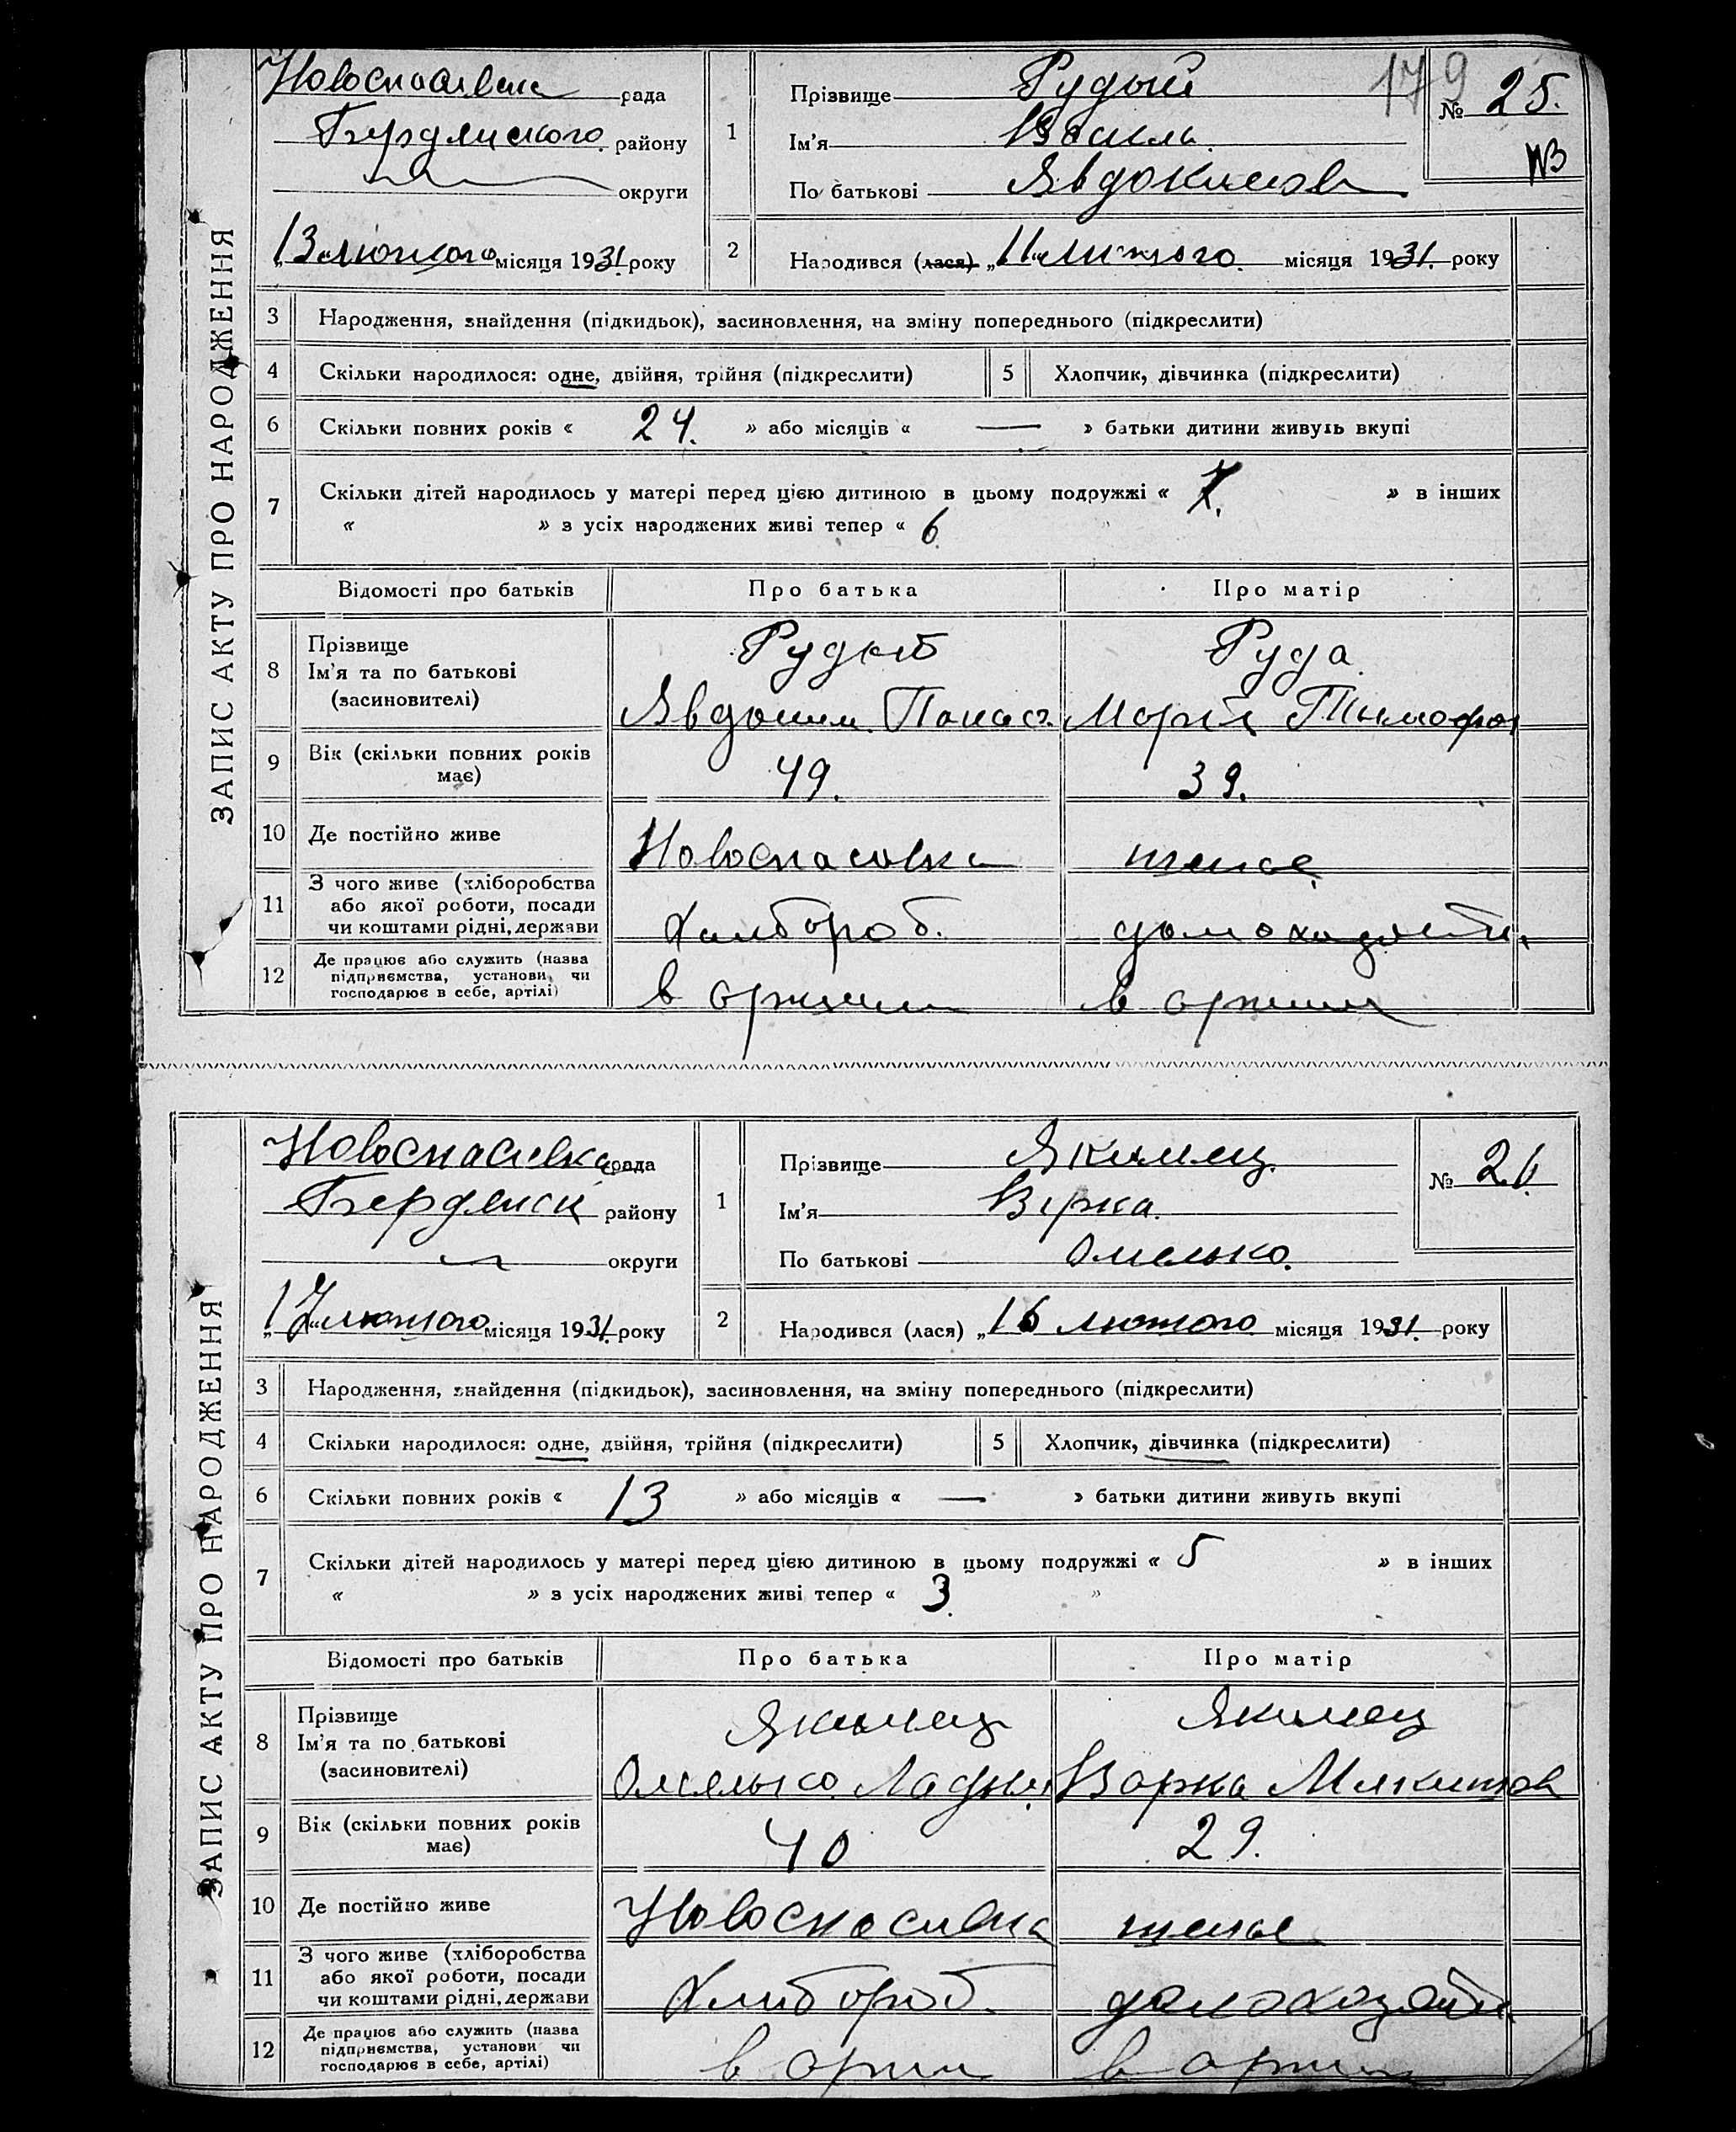 179
Новоспасівка рада
Бердянського району
округи
„13" лютого місяця 1931 року
ЗАПИС АКТУ ПРО НАРОДЖЕННЯ
1
Прізвище Рудый
Ім'я Василь.
По батькові Явдокимов
№ 25.
2
Народився (лася) „11" лютого. місяця 1931. року
3 Народження, знайдення (підкидьок), засиновлення, на зміну попереднього (підкреслити)
4 Скільки народилося: одне, двійня, трійня (підкреслити) 5 Хлопчик, дівчинка (підкреслити)
6 Скільки повних років « 24. » або місяців « — » батьки дитини живуть вкупі
7 Скільки дітей народилось у матері перед цією дитиною в цьому подружжі « » в інших
« » з усіх народжених живі тепер « 6 »
Відомості про батьків Про батька Про матір
8 Прізвище Рудий Руда
Ім'я та по батькові
(засиновителі) Явдоким Панас. Марія Тимофі
9 Вік (скільки повних років має) 49. 39.
10 Де постійно живе Новоспасовка теж
11 З чого живе (хліборобства
або якої роботи, посади
чи коштами рідні, держави Хлибороб. домохазяйи.
12 Де працює або служить (назва
підприємства, установи, чи
господарює в себе, артілі) в артили в артили
Новоспасивка рада
Бердянськ району
округи
„17" лютого місяця 1931. року
ЗАПИС АКТУ ПРО НАРОДЖЕННЯ
1
Прізвище Якимец.
Ім'я Вірка.
По батькові Омелько.
№ 26.
2
Народився (лася) „16 лютого місяця 1931. року
3 Народження, знайдення (підкидьок), засиновлення, на зміну попереднього (підкреслити)
4 Скільки народилося: одне, двійня, трійня (підкреслити) 5 Хлопчик, дівчинка (підкреслити)
6 Скільки повних років « 13 » або місяців « — » батьки дитини живуть вкупі
7 Скільки дітей народилось у матері перед цією дитиною в цьому подружжі « 5 » в інших
« » з усіх народжених живі тепер « 3. »
Відомості про батьків Про батька Про матір
8 Прізвище Якимец Якимец
Ім'я та по батькові
(засиновителі) Омелько Варка Микитов
9 Вік (скільки повних років має) 40 29.
10 Де постійно живе Новоспасивка теж
11 З чого живе (хліборобства
або якої роботи, посади
чи коштами рідні, держави Хлибороб. домохазяйи
12 Де працює або служить (назва
підприємства, установи чи
господарює в себе, артілі) в арти в арти